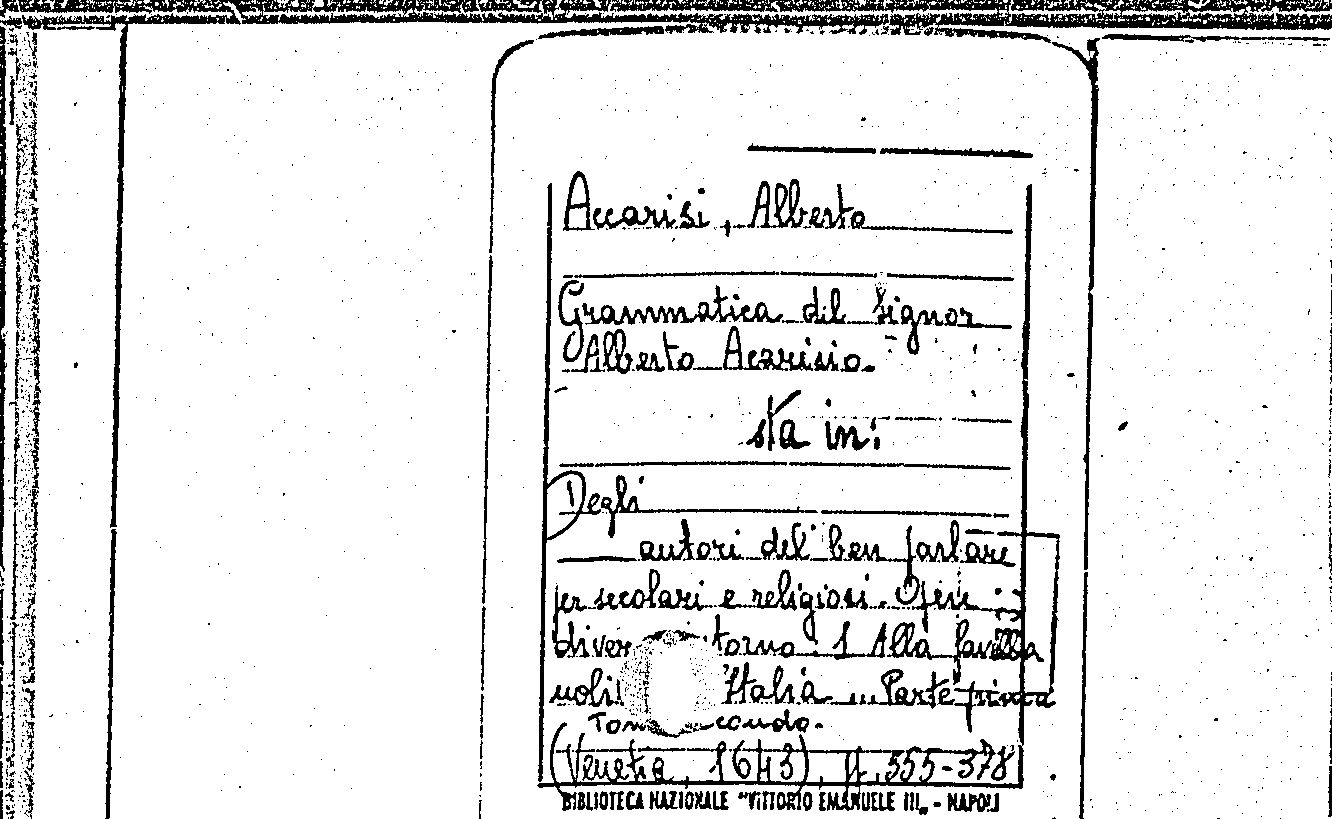 Accarisi, Alberto
Grammatica del signor
Alberto Acarisio.
sta in:
Degli
autori del ben parlare
per secolari e religiosi. Opere
diver torno: 1 Alla favella
Italia ... Parte prima
Tom condo.
(Venetia, 1643), pp. 355-378
BIBLIOTECA NAZIONALE "VITTORIO EMANUELE III„ - NAPOLI